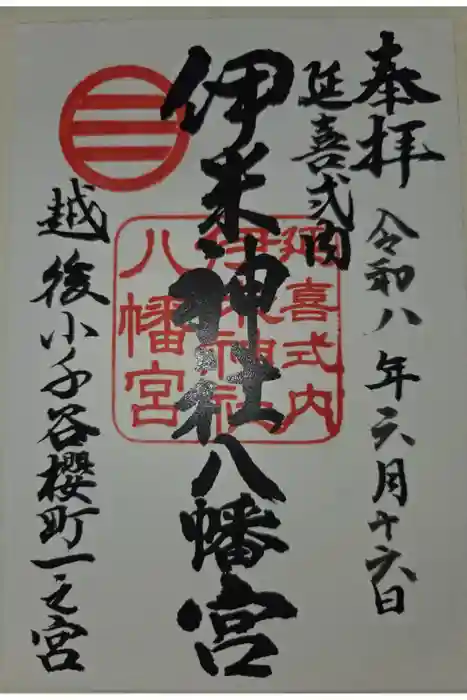 奉拝
令和八年六月十六日
延喜式内
伊米神社八幡宮
延喜式内
伊米神社
八幡宮
越後小千谷櫻町一之宮